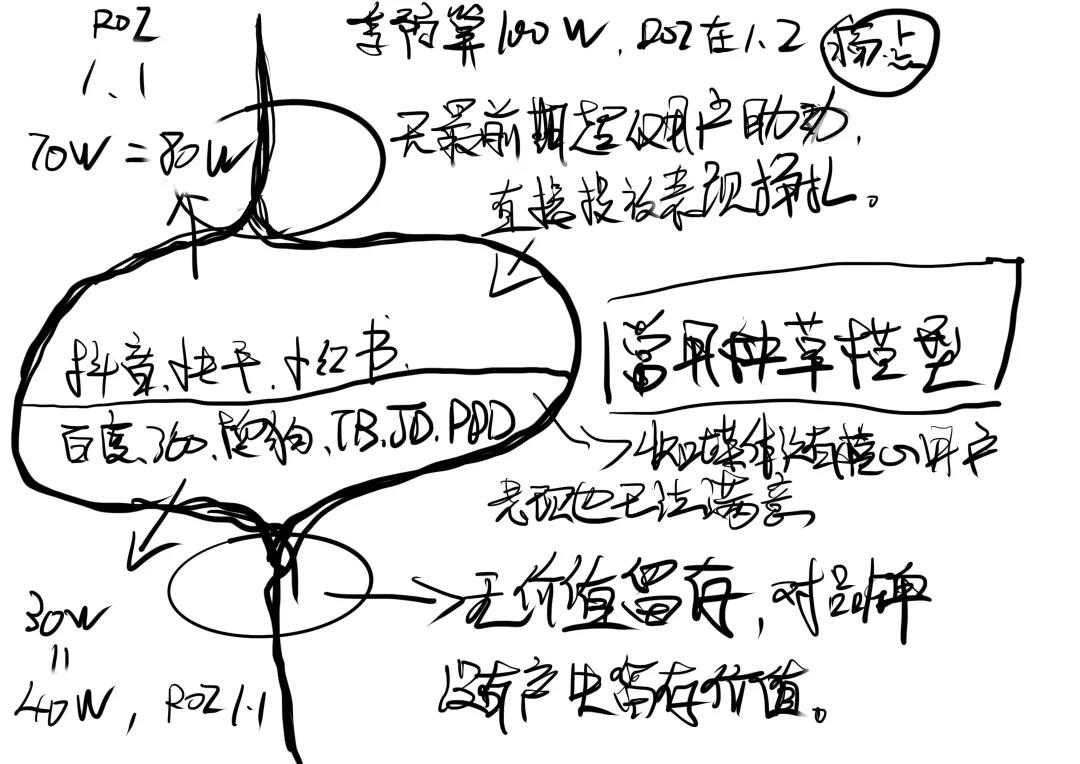 ROI
1.1
70W = 80W
季预算100W, ROI在1.2 痛点
无最前期超级用户助力,
直接投放表现挣扎。
抖音、快手、小红书、
百度、360、搜狗、TB、JD、PDD
常用种草模型
媒体没有精心用户
表现也无法满意
无价值留存,对品牌
没有产生留存价值。
30W
=
40W, ROI 1.1